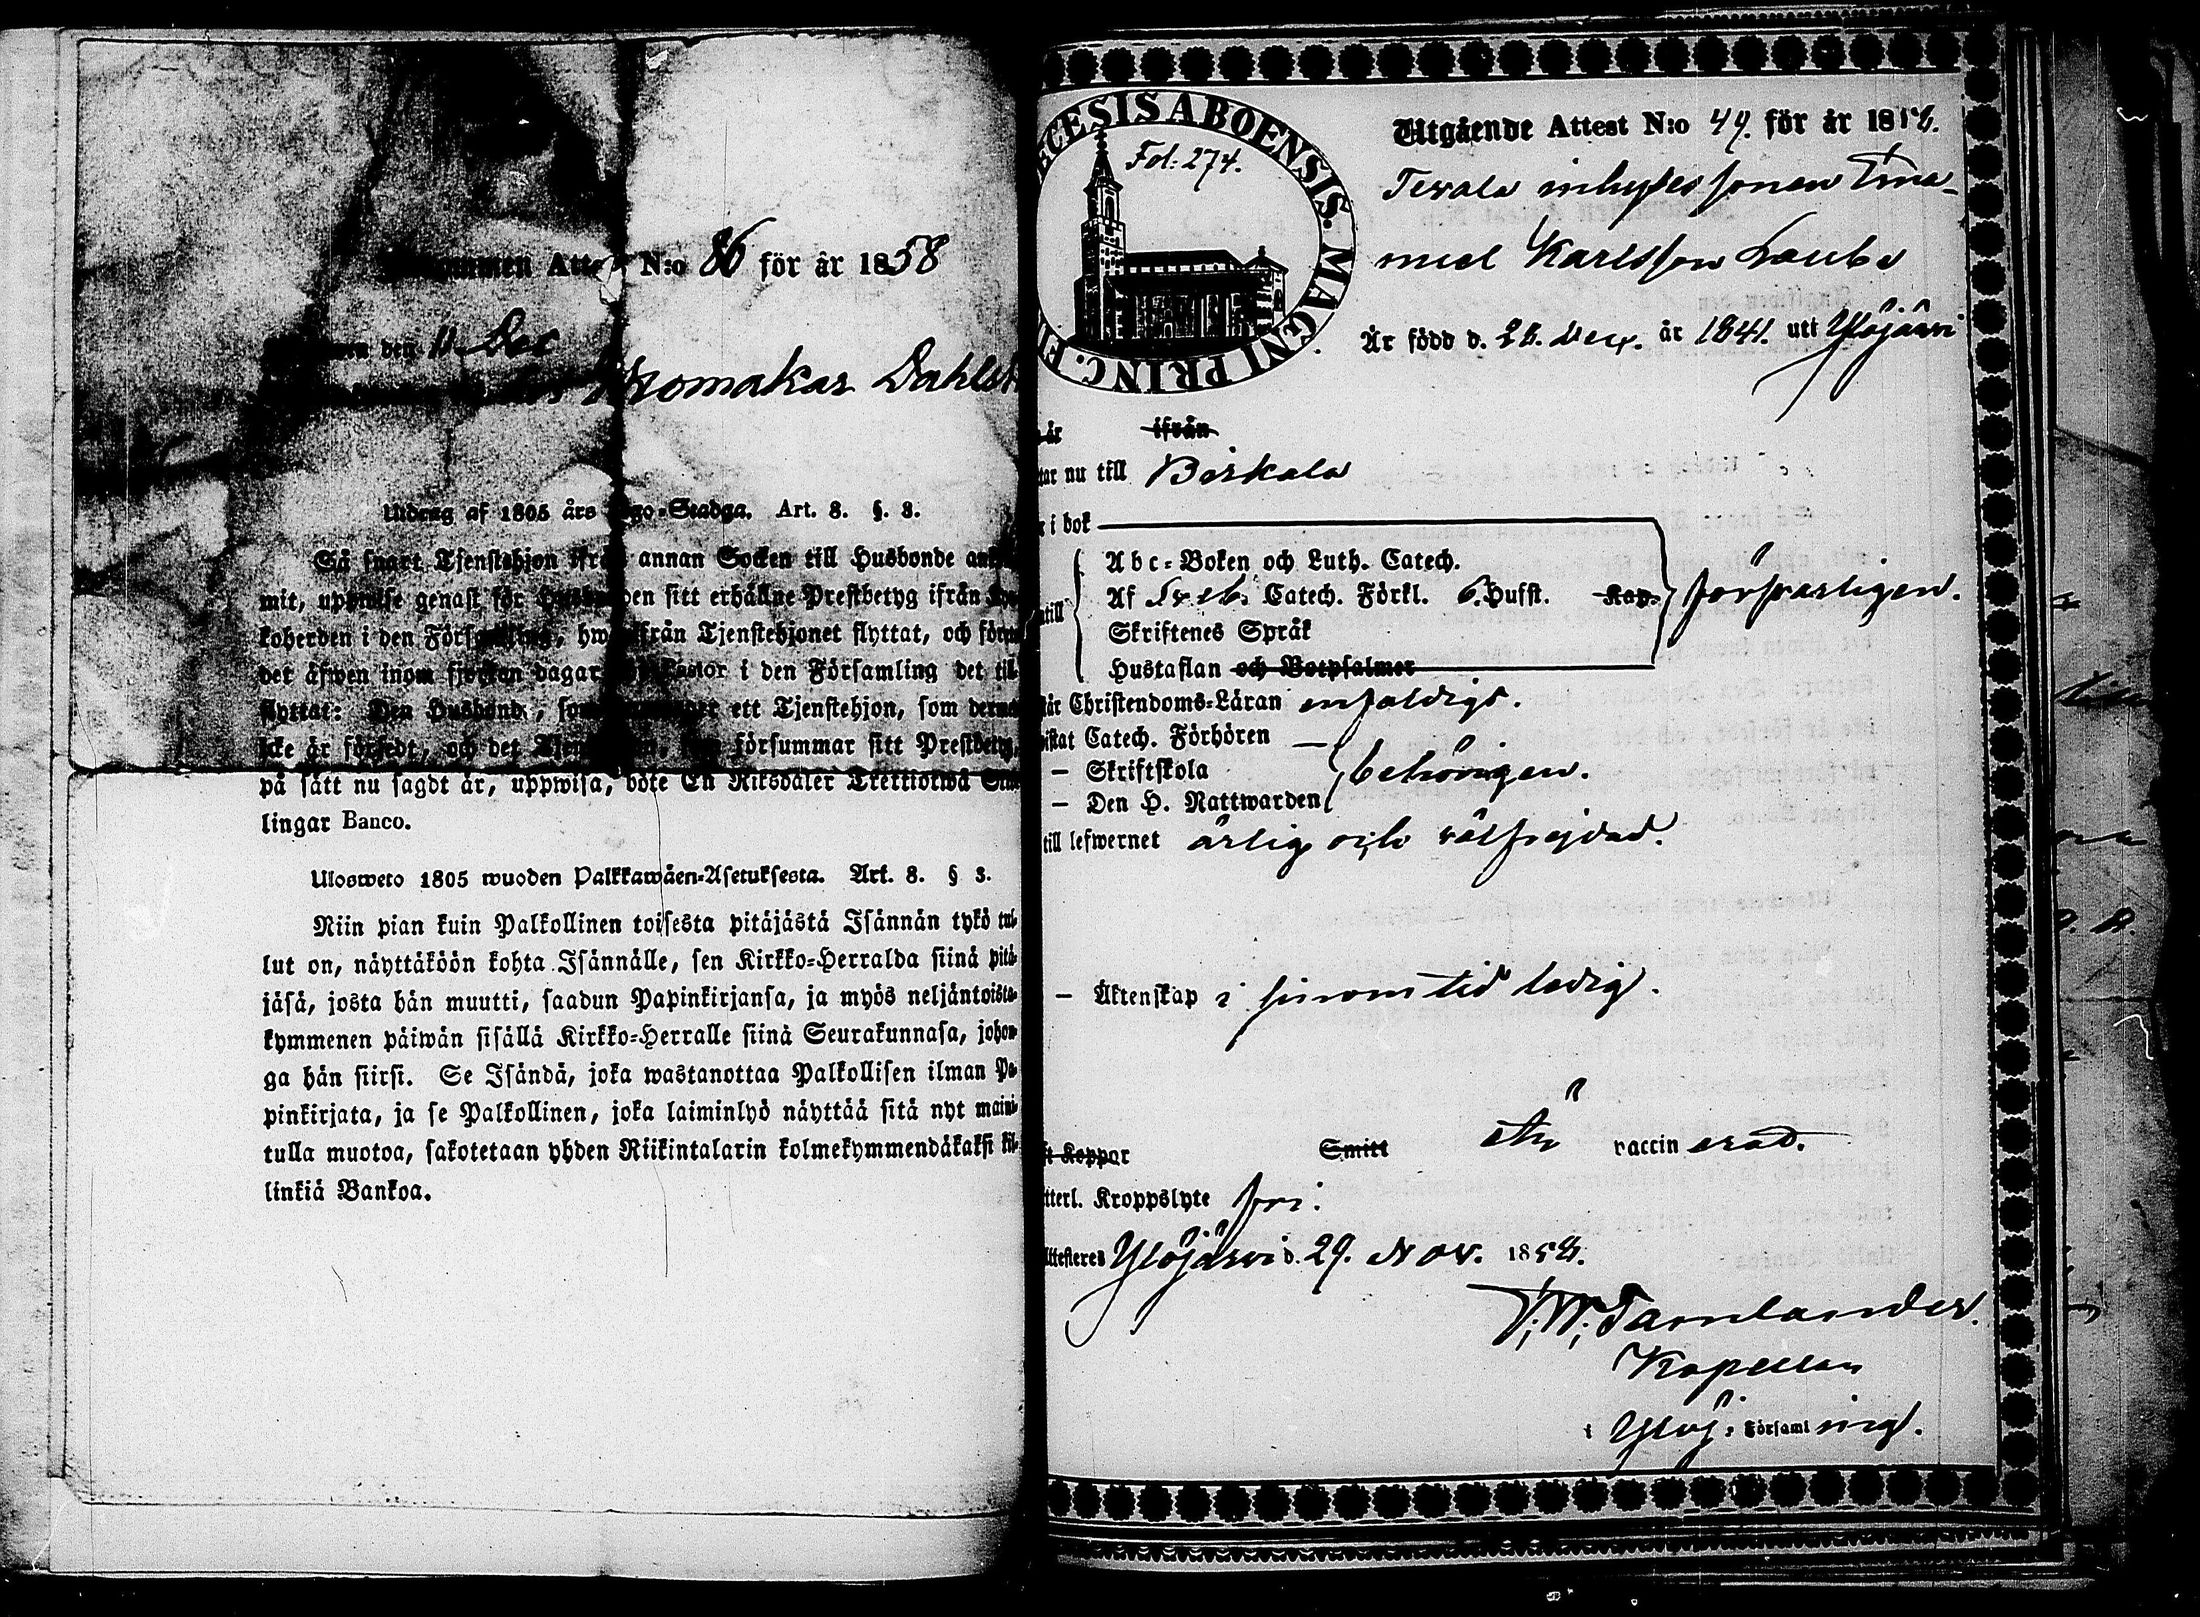 Atte N:o 86 för år 1858
den 11 Dec
Dahlst
Utdrag af 1805 års Lego-Stadga. Art. 8. §. 3.
Så snart Tjenstehjon ifrå annan Socken till Husbonde
mit, uppwise genast för den sitt erhållne Prestbetyg ifrån
koherden i den Församling, hw ifrån Tjenstehjonet flyttat, och
det äfwen inom fjorton dagar Pastor i den Församling det til-
flyttat: Den Husbonde, som ett Tjenstehjon, som
icke är försedt, och det försummar sitt Prestbetyg,
på sätt nu sagdt är, uppwisa, böte En Riksdaler Trettiotwå
lingar Banco.
Ulosweto 1805 wuoden Palkkawäen-Asetuksesta. Art. 8. § 3.
Niin pian kuin Palkollinen toisesta pitäjästä Isännän tykö tul-
lut on, näyttäköön kohta Isännälle, sen Kirkko-Herralda siinä pitä-
jäsä, josta hän muutti, saadun Papinkirjansa, ja myös neljäntoista-
kymmenen päiwän sisällä Kirkko-Herralle siinä Seurakunnasa, johon-
ga hän siirsi. Se Isändä, joka wastanottaa Palkollisen ilman Pa-
pinkirjata, ja se Palkollinen, joka laiminlyö näyttää sitä nyt maini-
tulla muotoa, sakotetaan yhden Riikintalarin kolmekymmendäkaksi kil-
linkiä Bankoa.
CESIS ABOENSIS. MAGNI PRINC. FI
Fol: 274.
Utgående Attest N:o 49. för år 1858.
inhyses sonen Ema-
nuel Karlsson
Är född d. 26. Dec. år 1841. uti Ylöjärvi
är ifrån
tar nu till Birkala
i bok
Abc-Boken och Luth. Catech.
Af Sveb. Catech. Förkl. 6. Hufst. Kap.
till försvarligen.
Skriftenes Språk
Hustaflan och Botpsalmer
tår Christendoms-Läran enfaldigt.
istat Catech. Förhören —
— Skriftskola behörigen.
— Den H. Nattwarden
till lefwernet ärlig och välfrejdad.
— Äktenskap i sinom tid ledig.
ft Koppor Smitt är vaccinerad.
tterl. Kroppslyte fri.
Attesteres Ylöjärvi d. 29. Nov. 1858.
Tamlander.
Kapellan
i Ylöj. Församling.